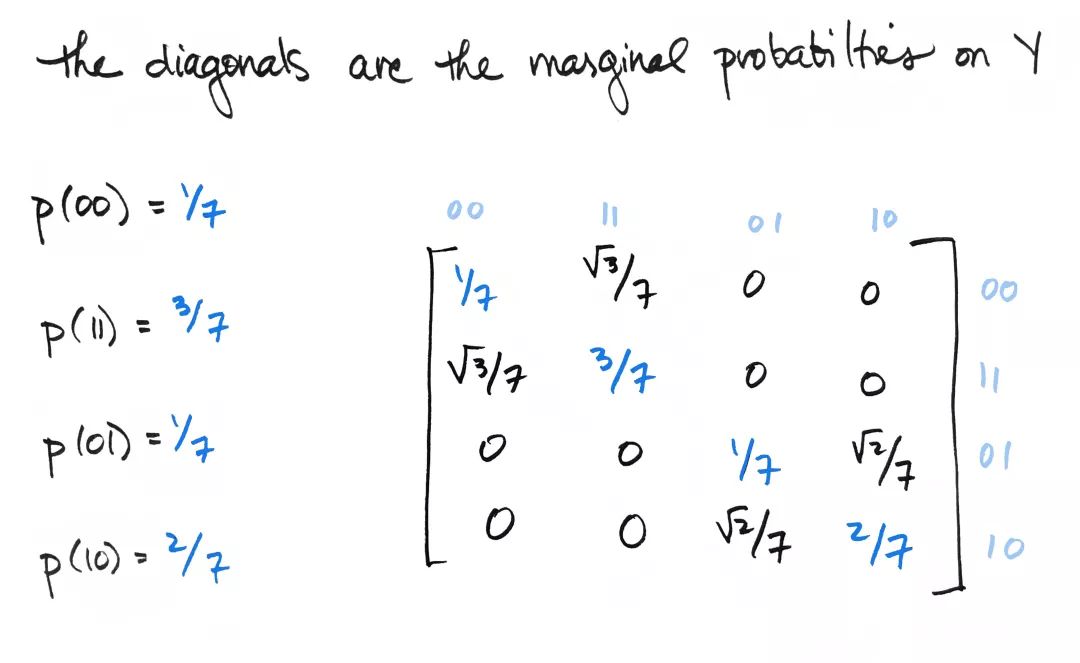 the diagonals are the marginal probabilties on Y
p(00) = 1/7
p(11) = 3/7
p(01) = 1/7
p(10) = 2/7
00 11 01 10
1/7 √3/7 0 0 00
√3/7 3/7 0 0 11
0 0 1/7 √2/7 01
0 0 √2/7 2/7 10